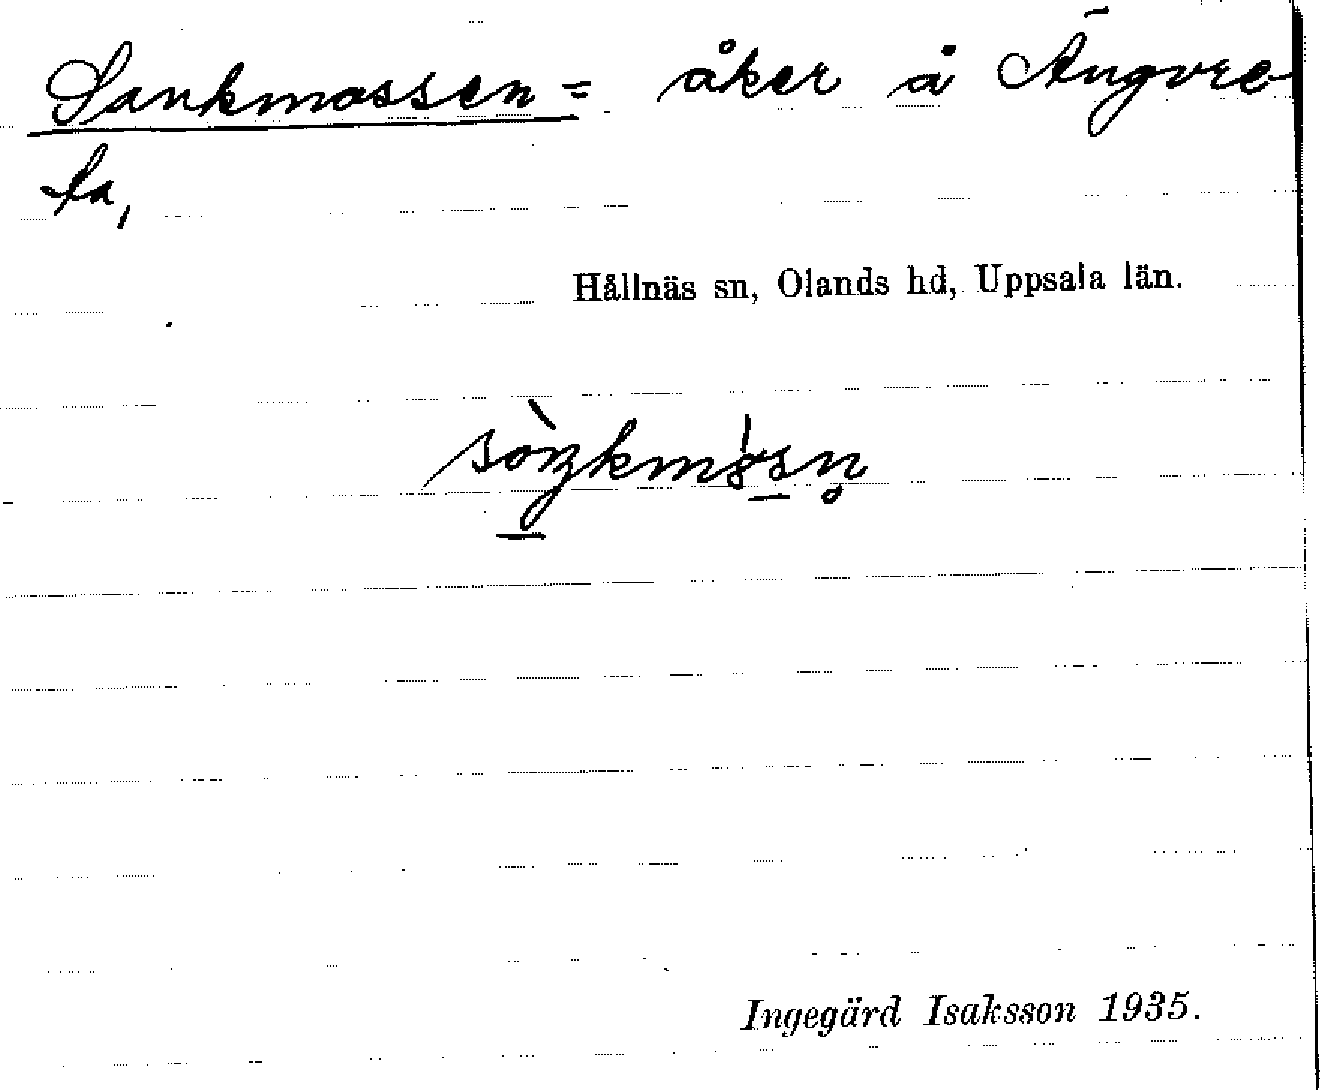 Sankmossen = åker å Ängvre
ta,
Hållnäs sn, Olands hd, Uppsala län.
Ingegärd Isaksson 1935.